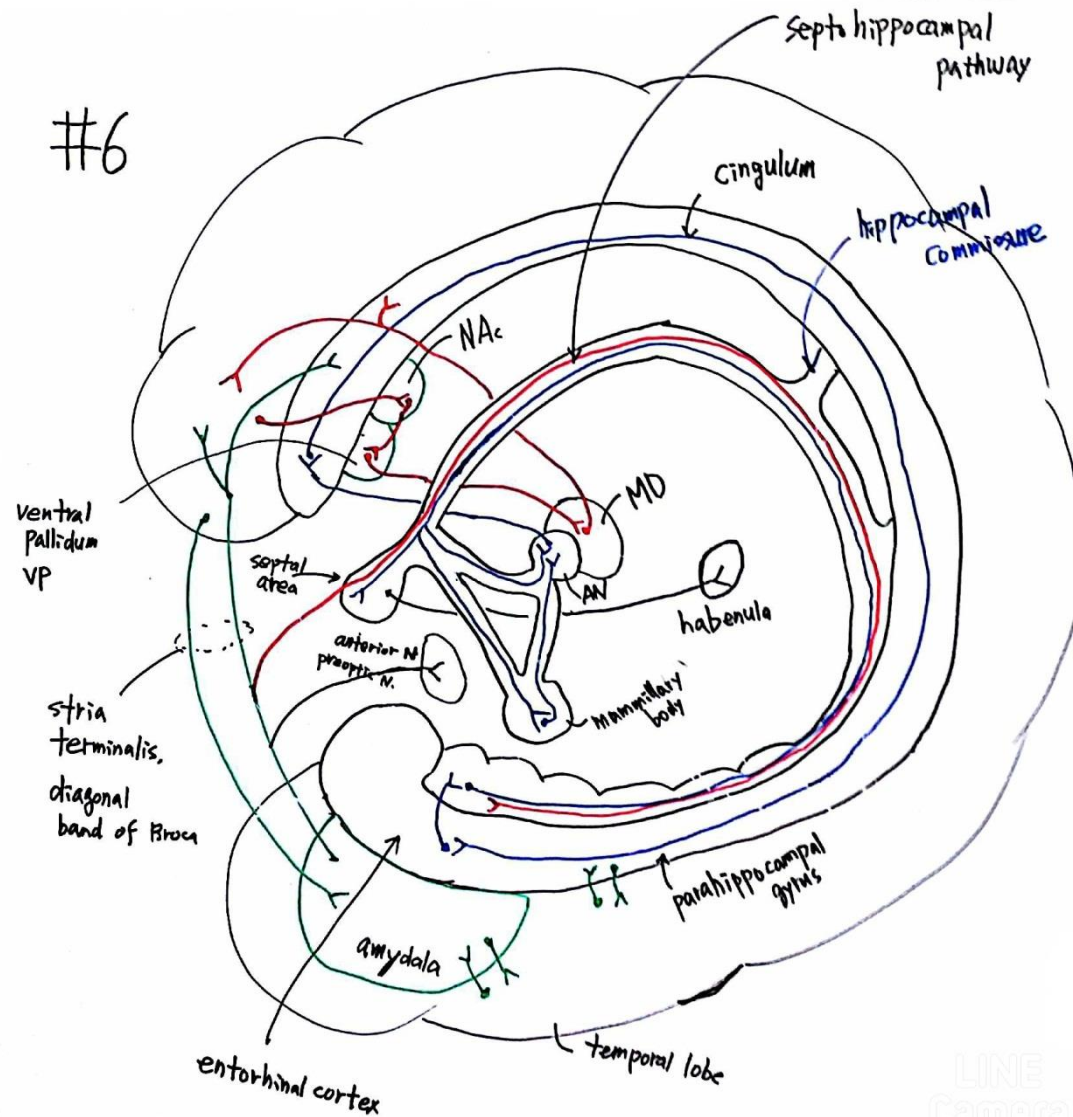 #6
septohippocampal
pathway
cingulum
hippocampal
commiosure
NAc
MD
AN
ventral
pallidum
VP
septal
area
habenula
anterior N.
preoptic N.
mammillary
body
stria
terminalis,
diagonal
band of Broca
parahippocampal
gyrus
amydala
entorhinal cortex
temporal lobe
LINE
Camera